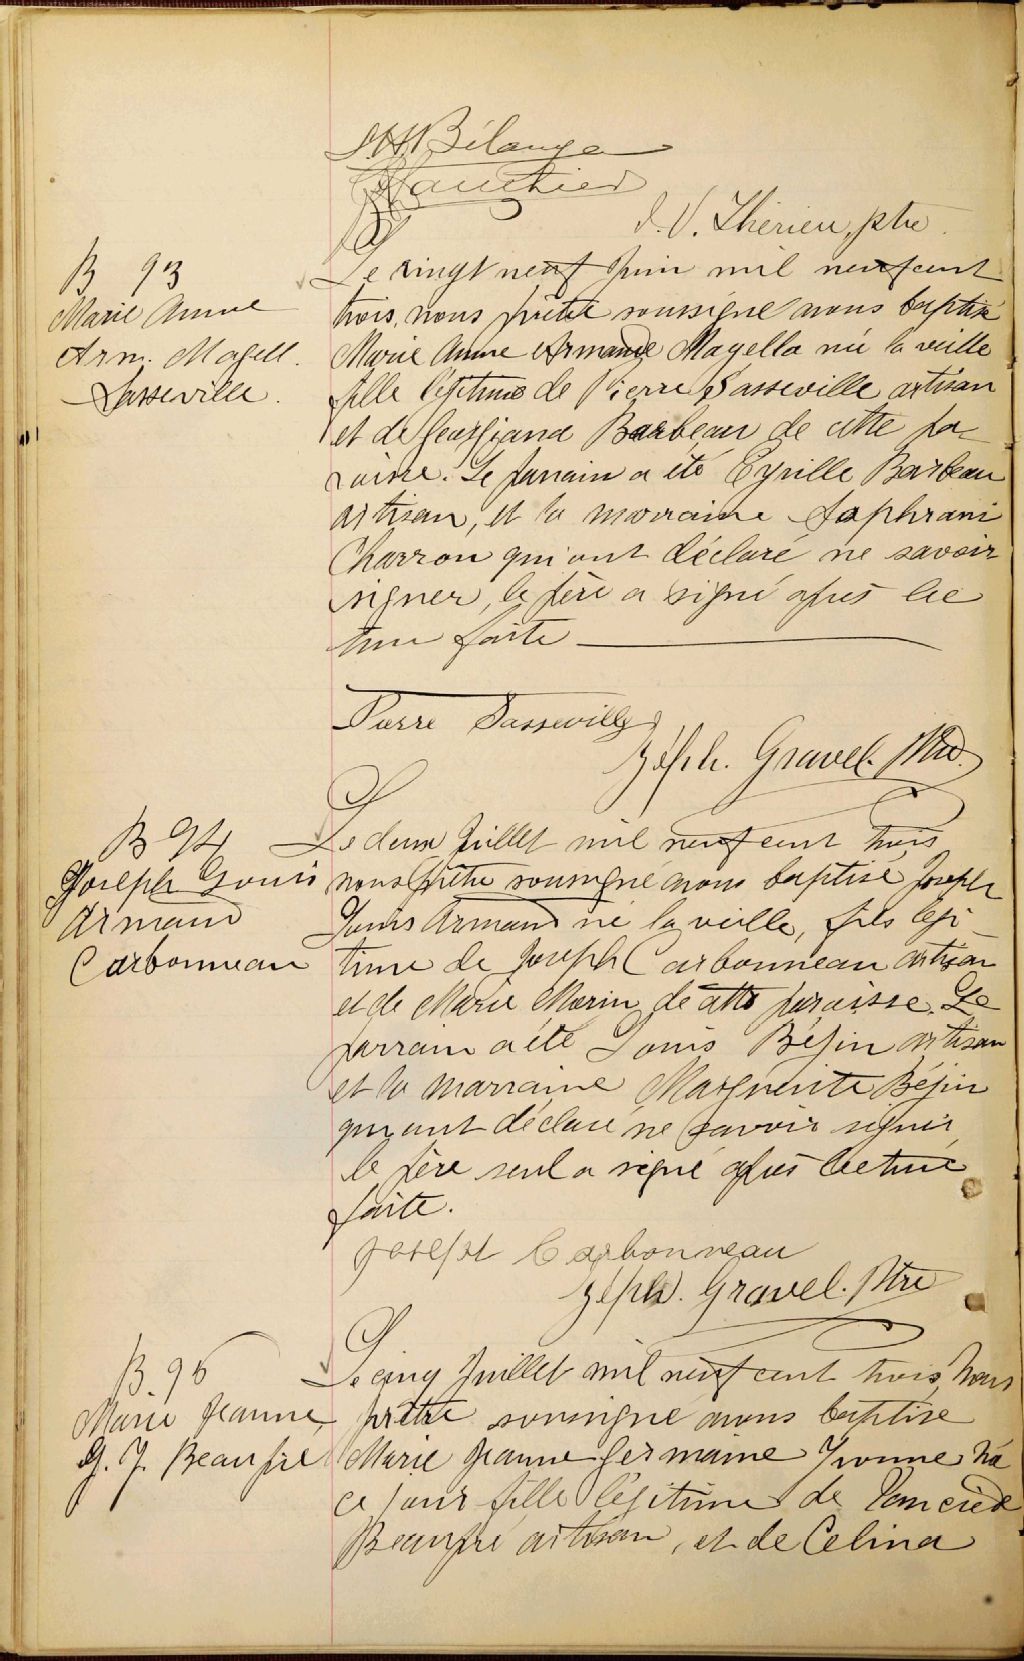 Bélanger
Gauthier
J. V. Thérien, ptre.
B 93
Marie Anne
Arm. Magell.
Lasseville.
Le vingt neuf Juin mil neuf cent
trois, nous prêtre soussigné avons baptisé
Marie Anne Armande Magella née la veille
fille légitime de Pierre Sasseville artisan
et de Georgiana Barbeau de cette pa-
roisse. Le parrain a été Cyrille Barbeau
artisan, et la marraine Saphranie
Charron qui ont déclaré ne savoir
signer, le père a signé après lec
ture faite
Pierre Sasseville
Zéph. Gravel. Ptre.
B 94
Joseph Louis
Armand
Carbonneau
Le deux Juillet mil neuf cent trois
nous prêtre soussigné avons baptisé Joseph
Louis Armand né la veille, fils légi-
time de Joseph Carbonneau artisan
et de Marie Morin de cette paroisse. Le
parrain a été Louis Bégin artisan
et la marraine Marguerite Bégin
qui ont déclaré ne savoir signer,
le père seul a signé après lecture
faite.
Joseph Carbonneau
Zéph. Gravel. Ptre
B. 95
Marie Jeanne
G. Y. Beaupré
Le cinq Juillet mil neuf cent trois, Nous
prêtre soussigné avons baptisé
Marie Jeanne Germaine Yvonne née
ce jour fille légitime de Tancrède
Beaupré artisan, et de Celina